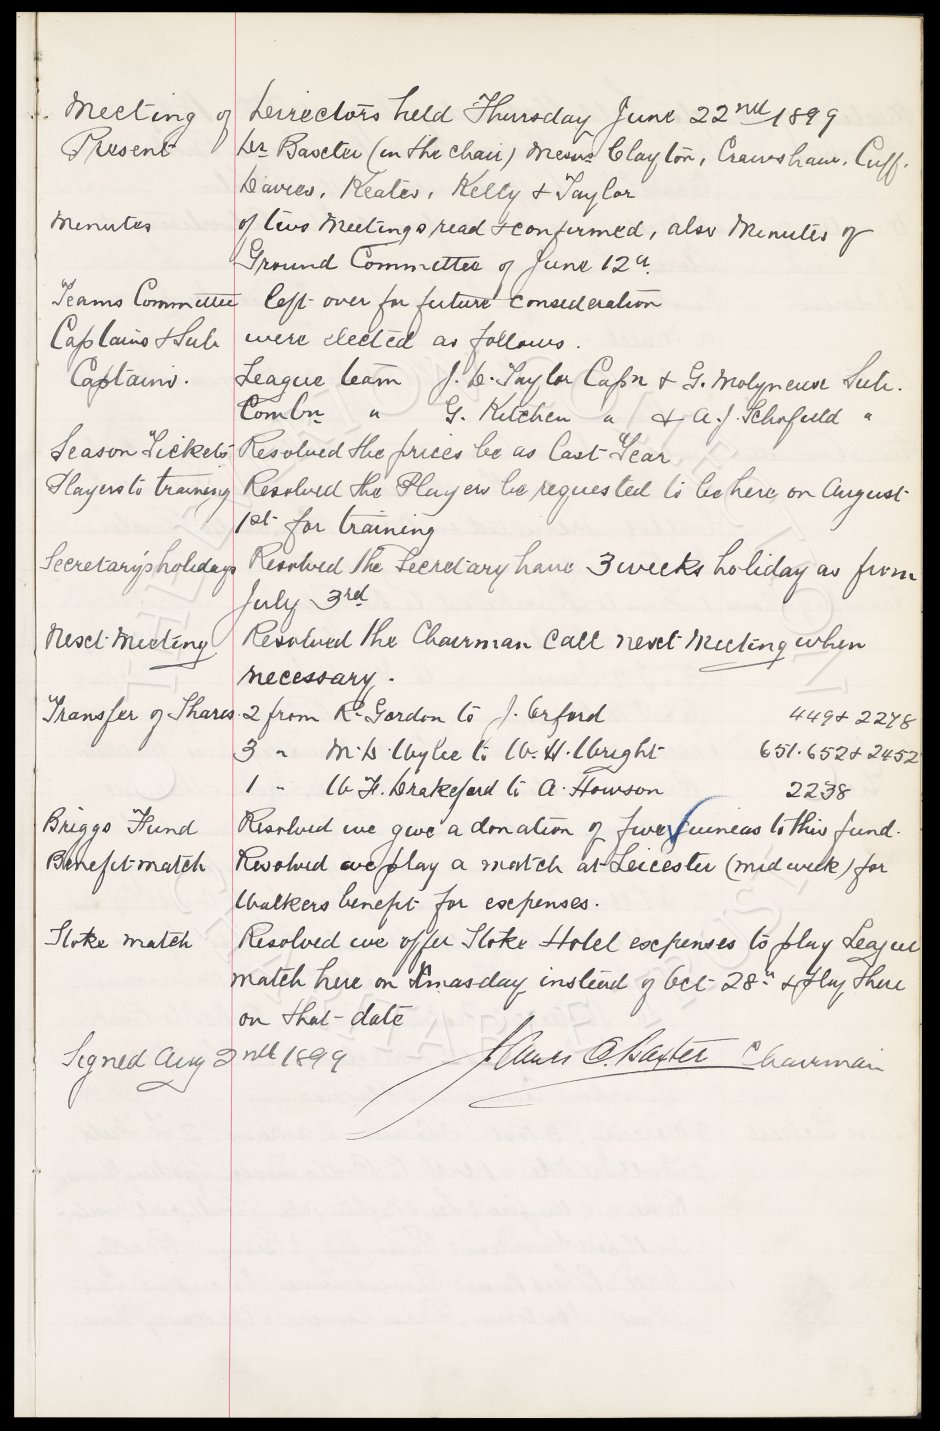 Meeting of Directors held Thursday June 22nd 1899
Present Dr Baxter (in the chair) Messrs Clayton, Crawshaw, Cuff.
Davies, Keates, Kelly & Taylor
Minutes of two Meetings read & confirmed, also Minutes of
Ground Committee of June 12th.
Teams Committee left over for future consideration
Captains & Sub were elected as follows.
Captains. League team J. D. Taylor Capn & G. Molyneux Sub.
Combn " G. Kitchen " & A. J. Schofield "
Season Tickets Resolved the prices be as last Year
Players to training Resolved the Players be requested to be here on August
1st for training
Secretary's holidays Resolved the Secretary have 3 weeks holiday as from
July 3rd
Next Meeting Resolved the Chairman call next Meeting when
necessary.
Transfer of Shares. 2 from R. Gordon to J. Orford 449 & 2278
3 " M. D. Wylie to W. H. Wright 651. 652 & 2452
1 " W F. Drakeford to A. Howson 2238
Briggs Fund Resolved we give a donation of five Guineas to this fund.
Benefit match Resolved we play a match at Leicester (mid week) for
Walkers benefit for expenses.
Stoke match Resolved we offer Stoke Hotel expenses to play League
match here on Xmas day instead of Oct 28th & play there
on that date
Signed Aug 2nd 1899 James C. Baxter Chairman